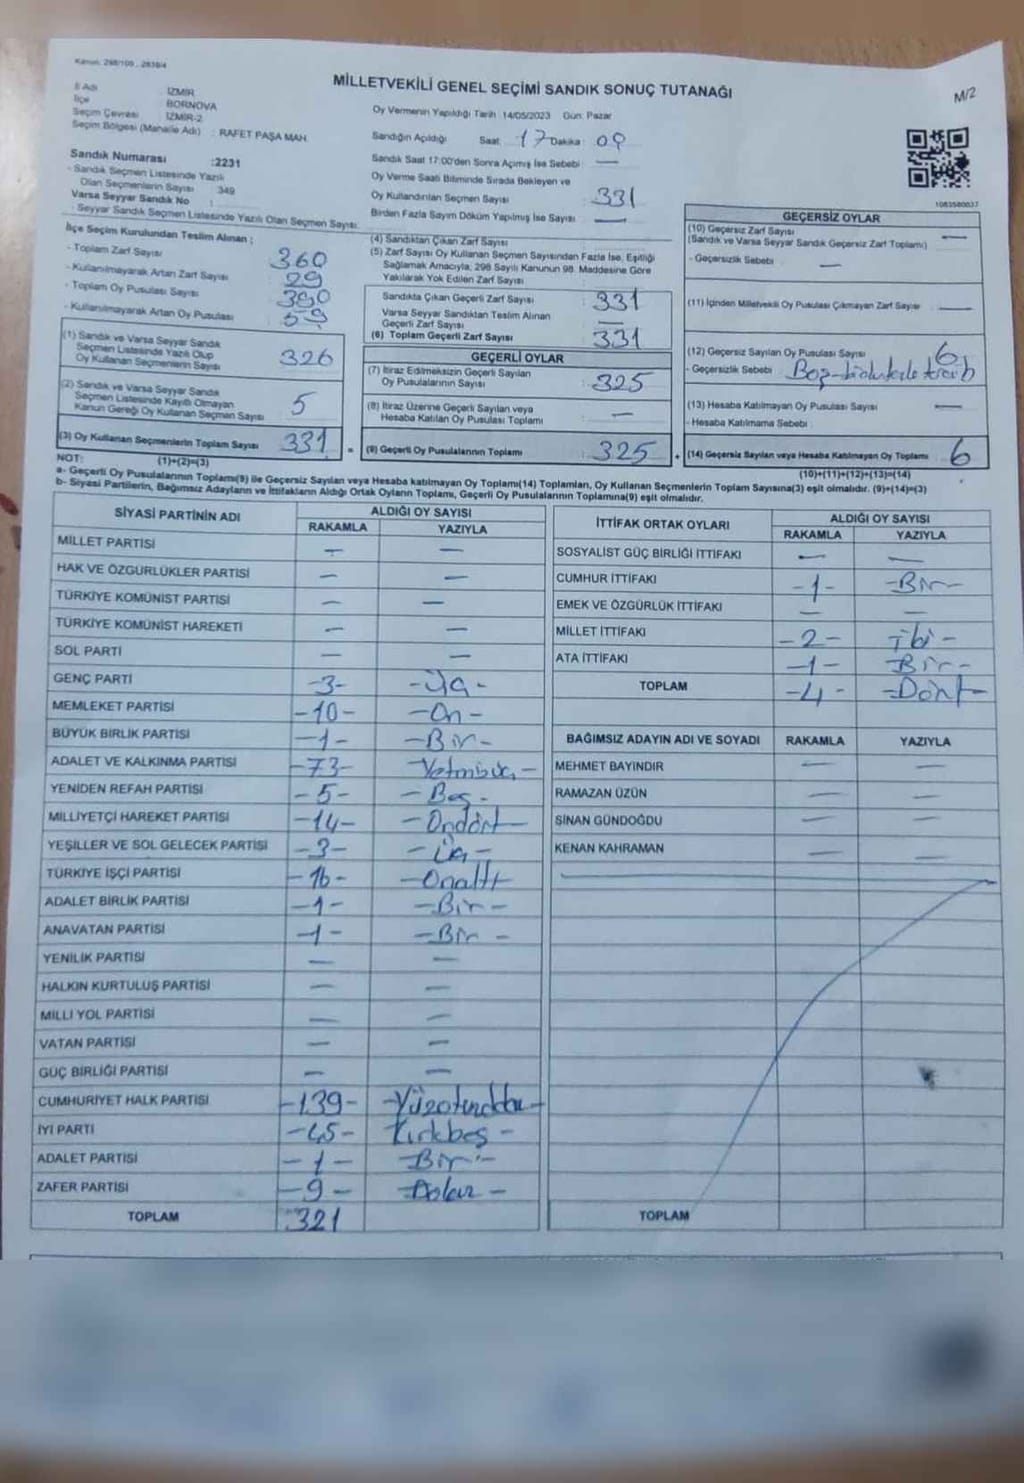 Kanun: 298/105 , 2839/4
MİLLETVEKİLİ GENEL SEÇİMİ SANDIK SONUÇ TUTANAĞI
M/2
İl Adı : İZMİR
İlçe : BORNOVA
Seçim Çevresi : İZMİR-2
Seçim Bölgesi (Mahalle Adı) : RAFET PAŞA MAH.
Sandık Numarası :2231
- Sandık Seçmen Listesinde Yazılı
Olan Seçmenlerin Sayısı : 349
Varsa Seyyar Sandık No :
- Seyyar Sandık Seçmen Listesinde Yazılı Olan Seçmen Sayısı:
Oy Vermenin Yapıldığı Tarih : 14/05/2023 Gün: Pazar
Sandığın Açıldığı Saat: 17 Dakika: 09
Sandık Saat 17:00'den Sonra Açılmış İse Sebebi : —
Oy Verme Saati Bitiminde Sırada Bekleyen ve
Oy Kullandırılan Seçmen Sayısı : 331
Birden Fazla Sayım Döküm Yapılmış İse Sayısı : —
1083580037
İlçe Seçim Kurulundan Teslim Alınan ;
- Toplam Zarf Sayısı : 360
- Kullanılmayarak Artan Zarf Sayısı : 29
- Toplam Oy Pusulası Sayısı : 380
- Kullanılmayarak Artan Oy Pusulası : 59
(1) Sandık ve Varsa Seyyar Sandık
Seçmen Listesinde Yazılı Olup
Oy Kullanan Seçmenlerin Sayısı 326
(2) Sandık ve Varsa Seyyar Sandık
Seçmen Listesinde Kayıtlı Olmayan
Kanun Gereği Oy Kullanan Seçmen Sayısı 5
(3) Oy Kullanan Seçmenlerin Toplam Sayısı 331
(1)+(2)=(3)
(4) Sandıktan Çıkan Zarf Sayısı :
(5) Zarf Sayısı Oy Kullanan Seçmen Sayısından Fazla İse, Eşitliği
Sağlamak Amacıyla, 298 Sayılı Kanunun 98. Maddesine Göre
Yakılarak Yok Edilen Zarf Sayısı :
Sandıkta Çıkan Geçerli Zarf Sayısı : 331
Varsa Seyyar Sandıktan Teslim Alınan
Geçerli Zarf Sayısı : —
(6) Toplam Geçerli Zarf Sayısı : 331
GEÇERLİ OYLAR
(7) İtiraz Edilmeksizin Geçerli Sayılan
Oy Pusulalarının Sayısı : 325
(8) İtiraz Üzerine Geçerli Sayılan veya
Hesaba Katılan Oy Pusulası Toplamı : —
= (9) Geçerli Oy Pusulalarının Toplamı : 325 +
GEÇERSİZ OYLAR
(10) Geçersiz Zarf Sayısı : —
(Sandık ve Varsa Seyyar Sandık Geçersiz Zarf Toplamı)
- Geçersizlik Sebebi : —
(11) İçinden Milletvekili Oy Pusulası Çıkmayan Zarf Sayısı : —
(12) Geçersiz Sayılan Oy Pusulası Sayısı : 6
- Geçersizlik Sebebi :
(13) Hesaba Katılmayan Oy Pusulası Sayısı : —
- Hesaba Katılmama Sebebi :
(14) Geçersiz Sayılan veya Hesaba Katılmayan Oy Toplamı : 6
(10)+(11)+(12)+(13)=(14)
NOT:
a- Geçerli Oy Pusulalarının Toplamı(9) ile Geçersiz Sayılan veya Hesaba katılmayan Oy Toplamı(14) Toplamları, Oy Kullanan Seçmenlerin Toplam Sayısına(3) eşit olmalıdır. (9)+(14)=(3)
b- Siyasi Partilerin, Bağımsız Adayların ve İttifakların Aldığı Ortak Oyların Toplamı, Geçerli Oy Pusulalarının Toplamına(9) eşit olmalıdır.
SİYASİ PARTİNİN ADI ALDIĞI OY SAYISI
RAKAMLA YAZIYLA
MİLLET PARTİSİ — —
HAK VE ÖZGÜRLÜKLER PARTİSİ — —
TÜRKİYE KOMÜNİST PARTİSİ — —
TÜRKİYE KOMÜNİST HAREKETİ — —
SOL PARTİ — —
GENÇ PARTİ -3- -Üç-
MEMLEKET PARTİSİ -10- -On-
BÜYÜK BİRLİK PARTİSİ -1- -Bir-
ADALET VE KALKINMA PARTİSİ -73- Yetmişüç-
YENİDEN REFAH PARTİSİ -5- -Beş-
MİLLİYETÇİ HAREKET PARTİSİ -14- -Ondört-
YEŞİLLER VE SOL GELECEK PARTİSİ -3- -Üç-
TÜRKİYE İŞÇİ PARTİSİ -16- -Onaltı
ADALET BİRLİK PARTİSİ -1- -Bir-
ANAVATAN PARTİSİ -1- -Bir-
YENİLİK PARTİSİ — —
HALKIN KURTULUŞ PARTİSİ — —
MİLLİ YOL PARTİSİ — —
VATAN PARTİSİ — —
GÜÇ BİRLİĞİ PARTİSİ — —
CUMHURİYET HALK PARTİSİ -139- -Yüzotuzdokuz-
İYİ PARTİ -45- Kırkbeş-
ADALET PARTİSİ -1- -Bir-
ZAFER PARTİSİ -9- -Dokuz-
TOPLAM 321
İTTİFAK ORTAK OYLARI ALDIĞI OY SAYISI
RAKAMLA YAZIYLA
SOSYALİST GÜÇ BİRLİĞİ İTTİFAKI — —
CUMHUR İTTİFAKI -1- -Bir-
EMEK VE ÖZGÜRLÜK İTTİFAKI — —
MİLLET İTTİFAKI -2- İki-
ATA İTTİFAKI -1- -Bir-
TOPLAM -4- -Dört-
BAĞIMSIZ ADAYIN ADI VE SOYADI RAKAMLA YAZIYLA
MEHMET BAYINDIR — —
RAMAZAN ÜZÜN — —
SİNAN GÜNDOĞDU — —
KENAN KAHRAMAN — —
TOPLAM